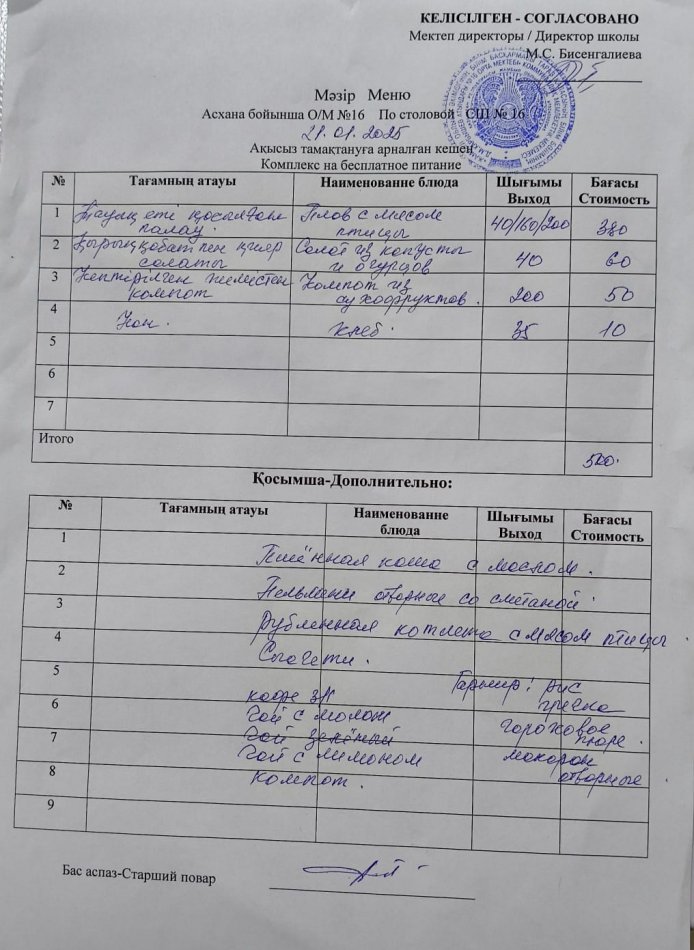 КЕЛІСІЛГЕН - СОГЛАСОВАНО
Мектеп директоры / Директор школы
М.С. Бисенгалиева
Мәзір Меню
Асхана бойынша О/М №16 По столовой СШ № 16
21.01.2025
Ақысыз тамақтануға арналған кешен
Комплекс на бесплатное питание
№ Тағамның атауы Наименование блюда Шығымы Выход Бағасы Стоимость
1 Тауық еті қосылған палау. Плов с мясом птицы 40/160/200 380
2 Қырыққабат пен қияр салаты Салат из капусты и огурцов 40 60
3 Кептірілген жемістен компот Компот из сухофруктов. 200 50
4 Нан. хлеб. 35 10
5
6
7
Итого 500.
Қосымша-Дополнительно:
№ Тағамның атауы Наименование блюда Шығымы Выход Бағасы Стоимость
1
Пшённая каша с маслом.
2
Пельмени отварные со сметаной.
3
Рубленная котлета с мясом птицы
4
Спагети.
5
Гарнир: рис
гречка
кофе 3/1
6
Чай с молок
гороховое
пюре.
7
Чай зелёный
Чай с лимоном
макарон
отварные
8
Компот.
9
Бас аспаз-Старший повар